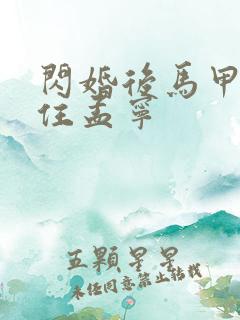 閃婚後馬甲
任孟寧
五顆星星
未任同意禁止轉載